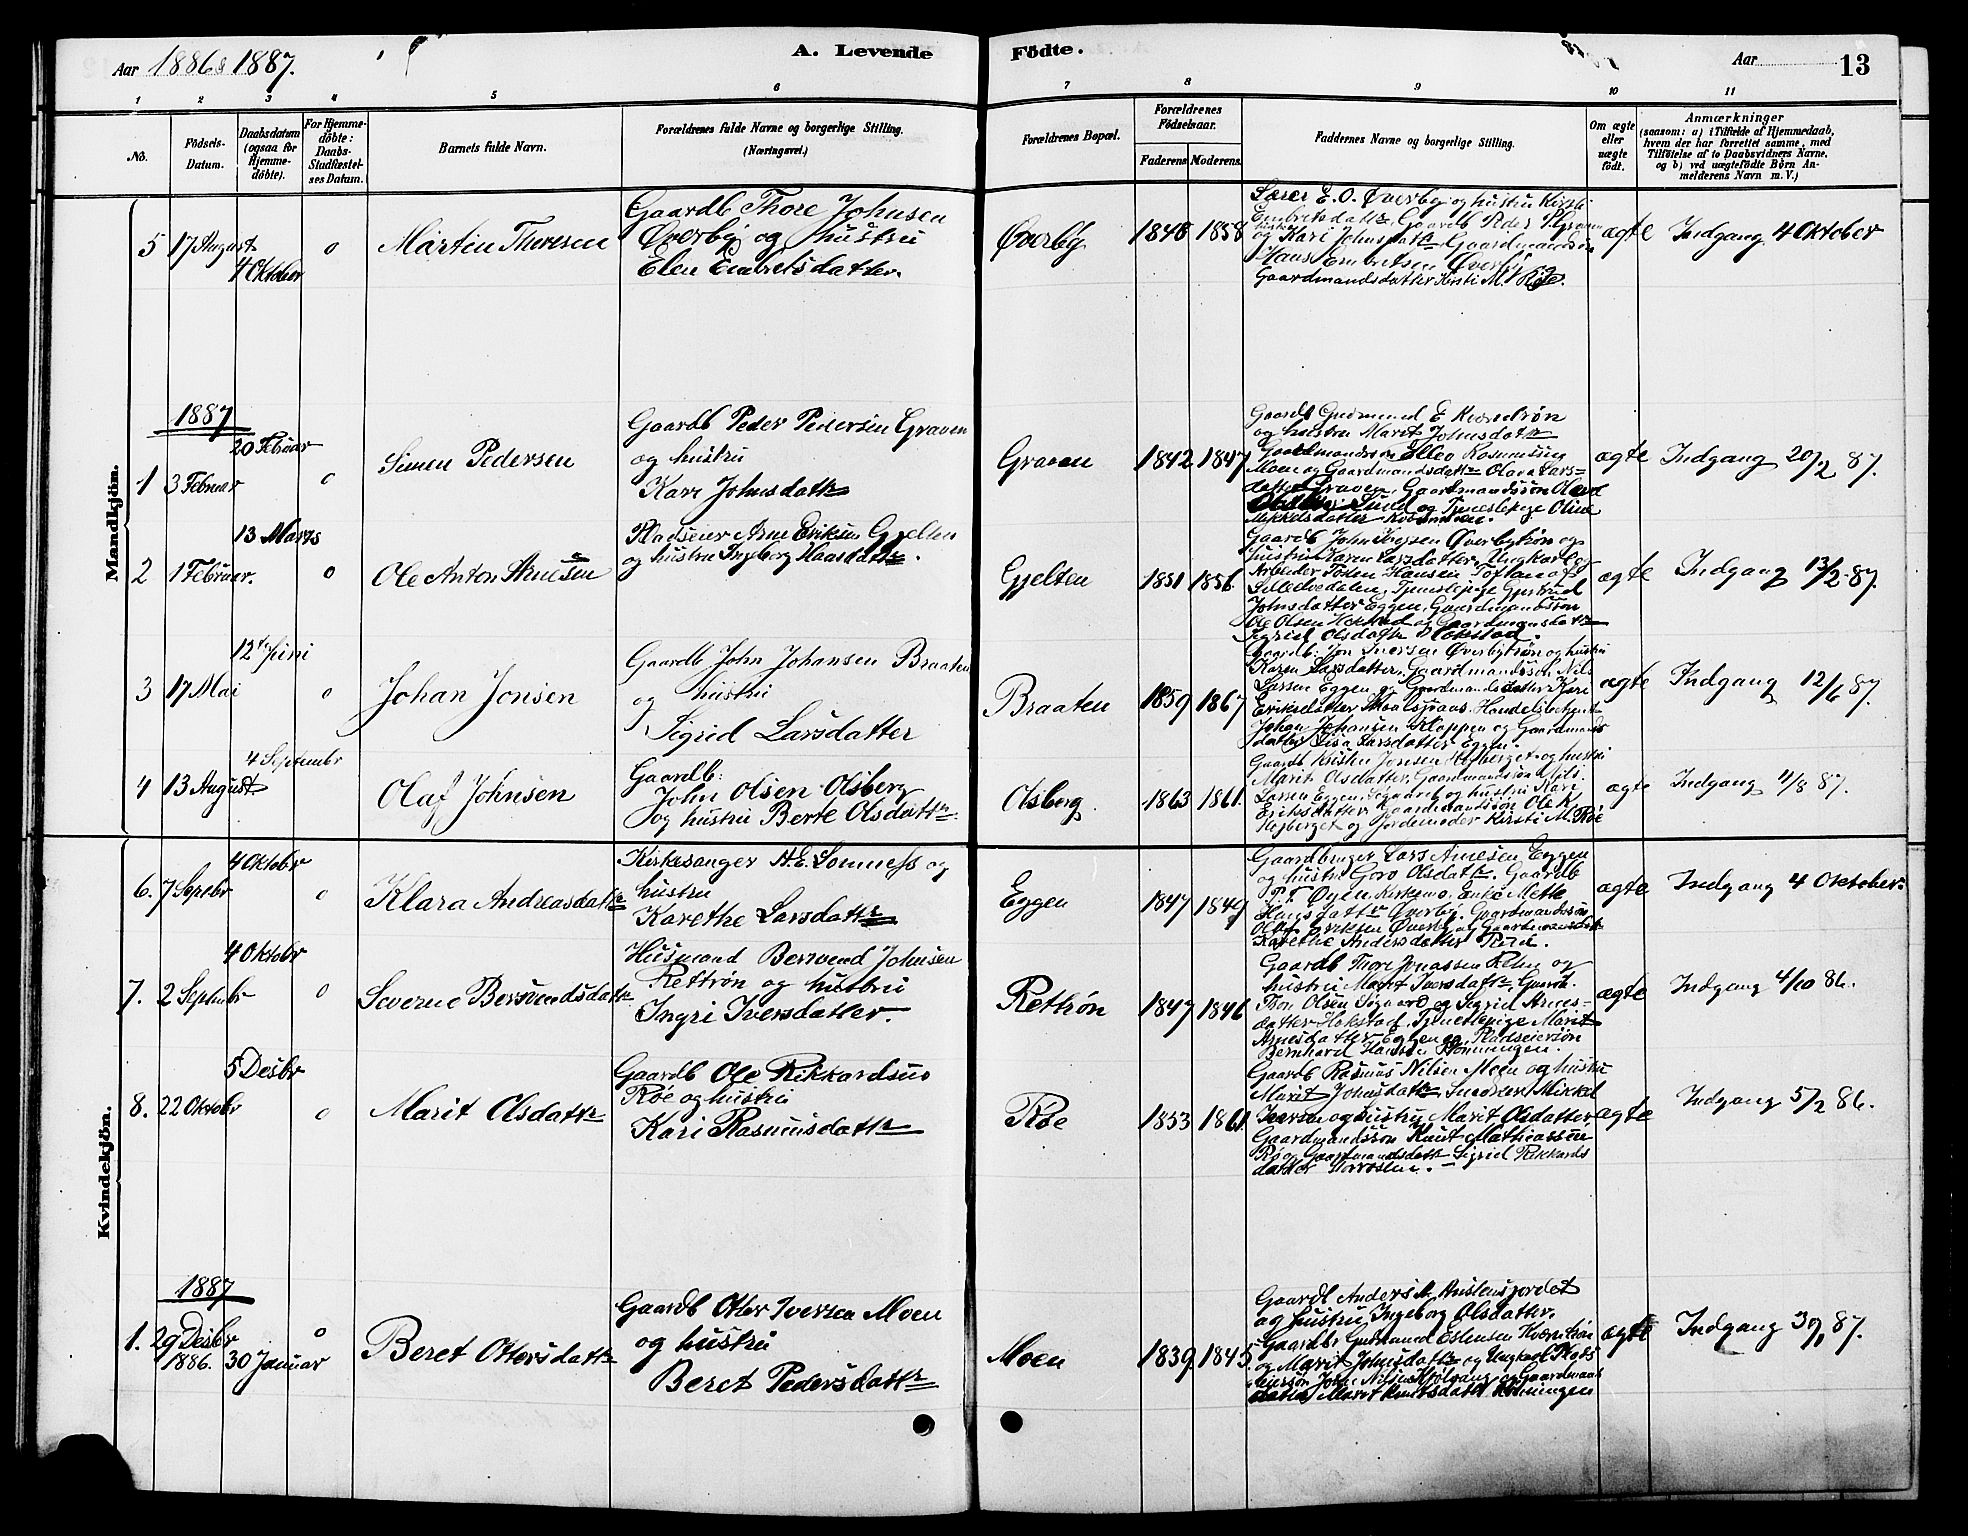 Aar 1886 & 1887.
A. Levende Födte.
Aar 13
1 2 3 4 5 6 7 8 9 10 11
No.
Födsels-Datum.
Daabsdatum (ogsaa for Hjemme-döbte).
For Hjemme-döbte: Daabs-Stadfæstel-ses Datum.
Barnets fulde Navn.
Forældrenes fulde Navne og borgerlige Stilling. (Næringsvei.)
Forældrenes Bopæl.
Forældrenes Födselsaar.
Faderens Moderens.
Faddernes Navne og borgerlige Stilling.
Om ægte eller uægte födt.
Anmærkninger
(saasom: a) i Tilfælde af Hjemmedaab,
hvem der har forrettet samme, med
Tilföielse af to Daabsvidners Navne,
og b) ved uægtefödte Börn An-
melderens Navn m. V.)
Mandkjön.
5 17 August 4 Oktober o Martin Thoresen
Gaardb Thore Johnsen
Øverby og hustru
Elen Embretsdatter.
Øverby 1848 1858
Lærer E. O. Øverby og hustru Kirsti
Embretsdattr, Gaardb Peder P. Graven
og hustru Kari Johnsdattr, Gaardmandssön
Hans Embretsen Øverby
Gaardmandsdatter Kirsti M. Röe.
ægte Indgang 4 Oktober
1887
1 3 Februar 20 Februar o Simen Pedersen
Gaardb Peder Pedersen Graven
og hustru
Kari Johnsdattr
Graven 1842 1847
Gaardb Gudmund E Kværnbrøn
og hustru Marit Johnsdattr
Gaardmandssön Ellev Rasmussen
Moen og Gaardmandsdattr Olava Lars-
datter Graven, Gaardmandssön
Lund og Tjenestepige Oline
Mikkelsdatter
ægte Indgang 20/2 87.
2 1 Februar. 13 Marts o Ole Anton Arnesen
Pladseier Arne Eriksen Gjelten
og hustru Ingeborg Haansdattr.
Gjelten 1851 1856
Gaardb John Øverbytrøn og
hustru Karen Larsdatter, Ungkarl og
Arbeider Hansen
Lilleelvedalen, Tjenestepige Gjertrud
Johnsdatter Eggen, Gaardmandssön
Ole Olsen Hokstad og Gaardmansdattr
Sigrid Olsdattr Hokstad.
ægte Indgang 13/2 - 87.
3 17 Mai 12te Juni o Johan Jonsen
Gaardb John Johansen Braaten
og hustru
Sigrid Larsdatter
Braaten 1859 1867
Gaardb. Jon Iversen Øverbytrøn og hustru
Karen Larsdatter, Gaardmandssön Nils
Larsen Eggen og Gaardmandsdatter Kari
Eriksdatter Handelsbetjent
Johan Johansen Kloppen og Gaardmands
datter Lisa Larsdatter Eggen.
ægte Indgang 12/6 87.
4 13 August 4 Septembr Olaf Johnsen
Gaardb:
John Olsen Olsberg
og hustru Berte Olsdattr
Olsberg. 1863 1861.
Gaardb Kristen Jonsen og hustru
Marit Olsdatter, Gaardmandssön Nils
Larsen Eggen, og hustru Kari
Eriksdatter Gaardmandssön Ole K.
og Jordemoder Kirsti M. Röe
ægte Indgang 4/8 87.
Kvindekjön.
6. 7 Sepebr 4 Oktobr o Klara Andreasdattr
Kirkesanger A. E. Lomness og
hustru
Karethe Larsdattr
Eggen 1847 1849
Gaardbruger Lars Arnesen Eggen
og hustru Goro Olsdattr. Gaardb
P. T. Øyen Kirkemo, Enke Mette
Hansdattr Øverby, Gaardmandssön
Oluf Eriksen Øverby og Gaardmansdatr
Karethe Andersdatter Röe.
ægte Indgang 4 Oktober
7. 2 Septmbr 4 Oktobr o Severine Bersvendsdattr
Husmand Bersvend Johnsen
Rettrøn og hustru
Ingri Iversdatter.
Rettrön 1847 1846
Gaardb Thore Jonassen og
hustru Marit Iversdattr, Gaardb.
Thor Olsen og Sigrid Arnes-
datter Hokstad, Tjenestepige Marit
Arnesdatter Eggen og Pladseiersön
Bernhard Hansen Rönningen.
ægte Indgang 4/10 86.
8. 22 Oktobr 5 Desbr o Marit Olsdattr
Gaardb Ole Rikkardsen
Röe og hustru
Kari Rasmusdattr
Röe 1853 1861.
Gaardb Rasmus Nilsen Moen og hustru
Marit Johnsdattr Mikkel
Iversen og hustru Marit Olsdatter,
Gaardmandssön Knut Mathiassen
Röe og Gaardmandsdattr Sigrid Rikkards
datter
ægte Indgang 5/2 86.
1887
1. 29 Desbr 1886. 30 Januar o Beret Ottersdattr
Gaardb Otter Iversen Moen
og hustru
Beret Pedersdattr
Moen 1839 1845
Gaardb Anders M
og hustru Ingeborg Olsdatter.
Gaardbr Gudmund Estensen Kværnbrön
og Marit Johnsdattr og Ungkarl Plads
eiersön John Nilsen og Gaardmans
datter Marit Knutsdattr Rönningen
ægte Indgang 30/1 87.